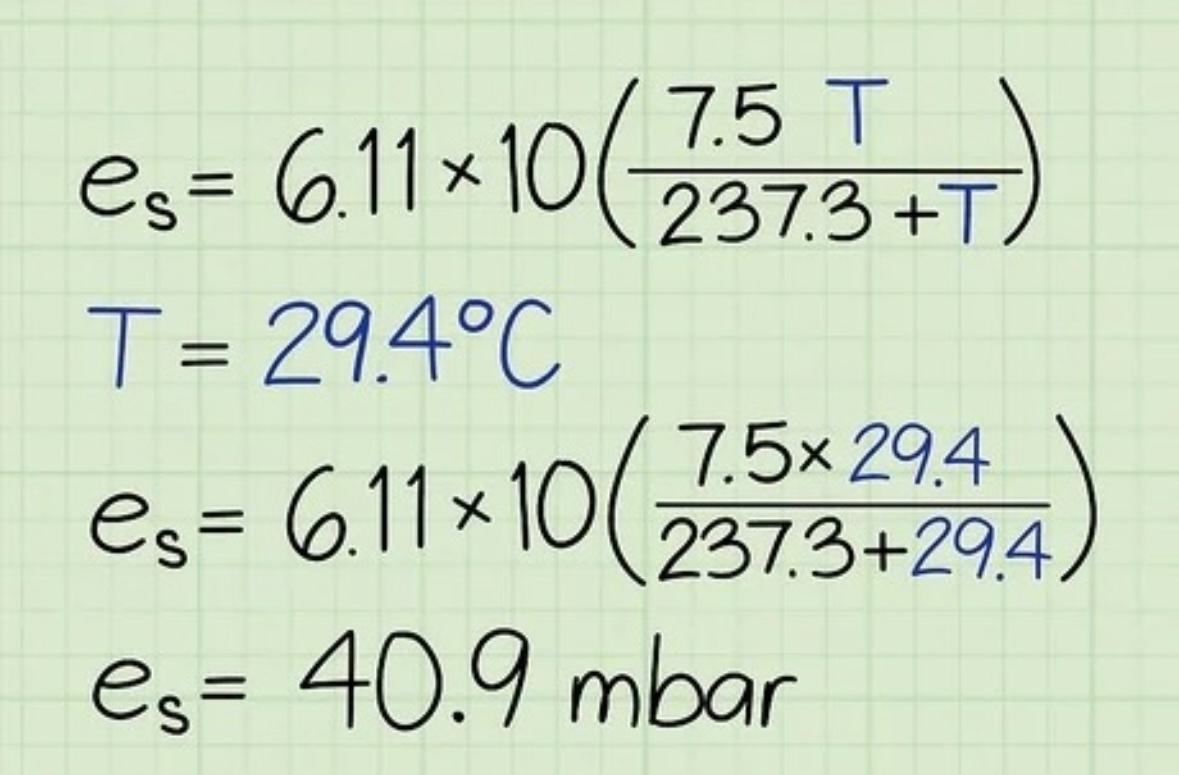 e_s = 6.11 × 10 (7.5 T / 237.3 + T)
T = 29.4°C
e_s = 6.11 × 10 (7.5 × 29.4 / 237.3 + 29.4)
e_s = 40.9 mbar